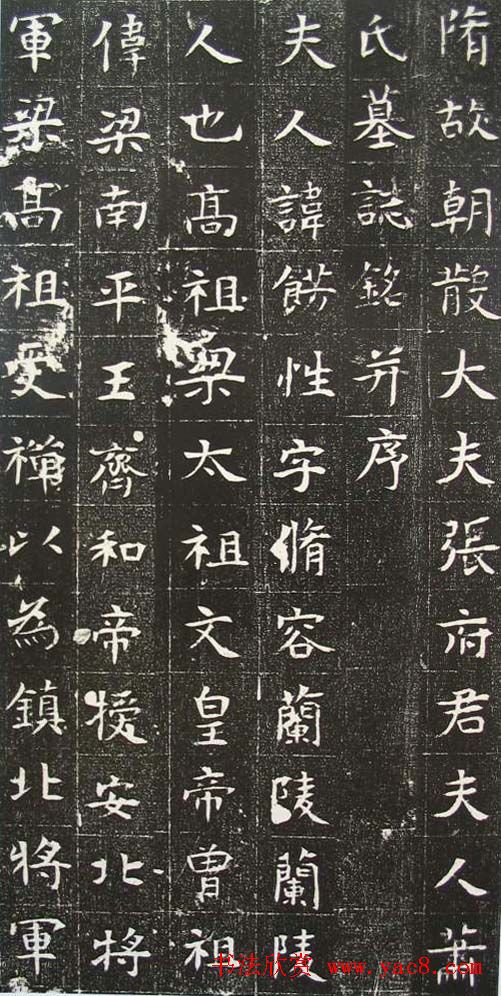 隋故朝散大夫張府君夫人蕭
氏墓誌銘并序
夫人諱飭性字脩容蘭陵蘭陵
人也髙祖梁太祖文皇帝曾祖
偉梁南平王齊和帝授安北將
軍梁髙祖受禪以為鎮北將軍
书法欣赏 www.yac8.com